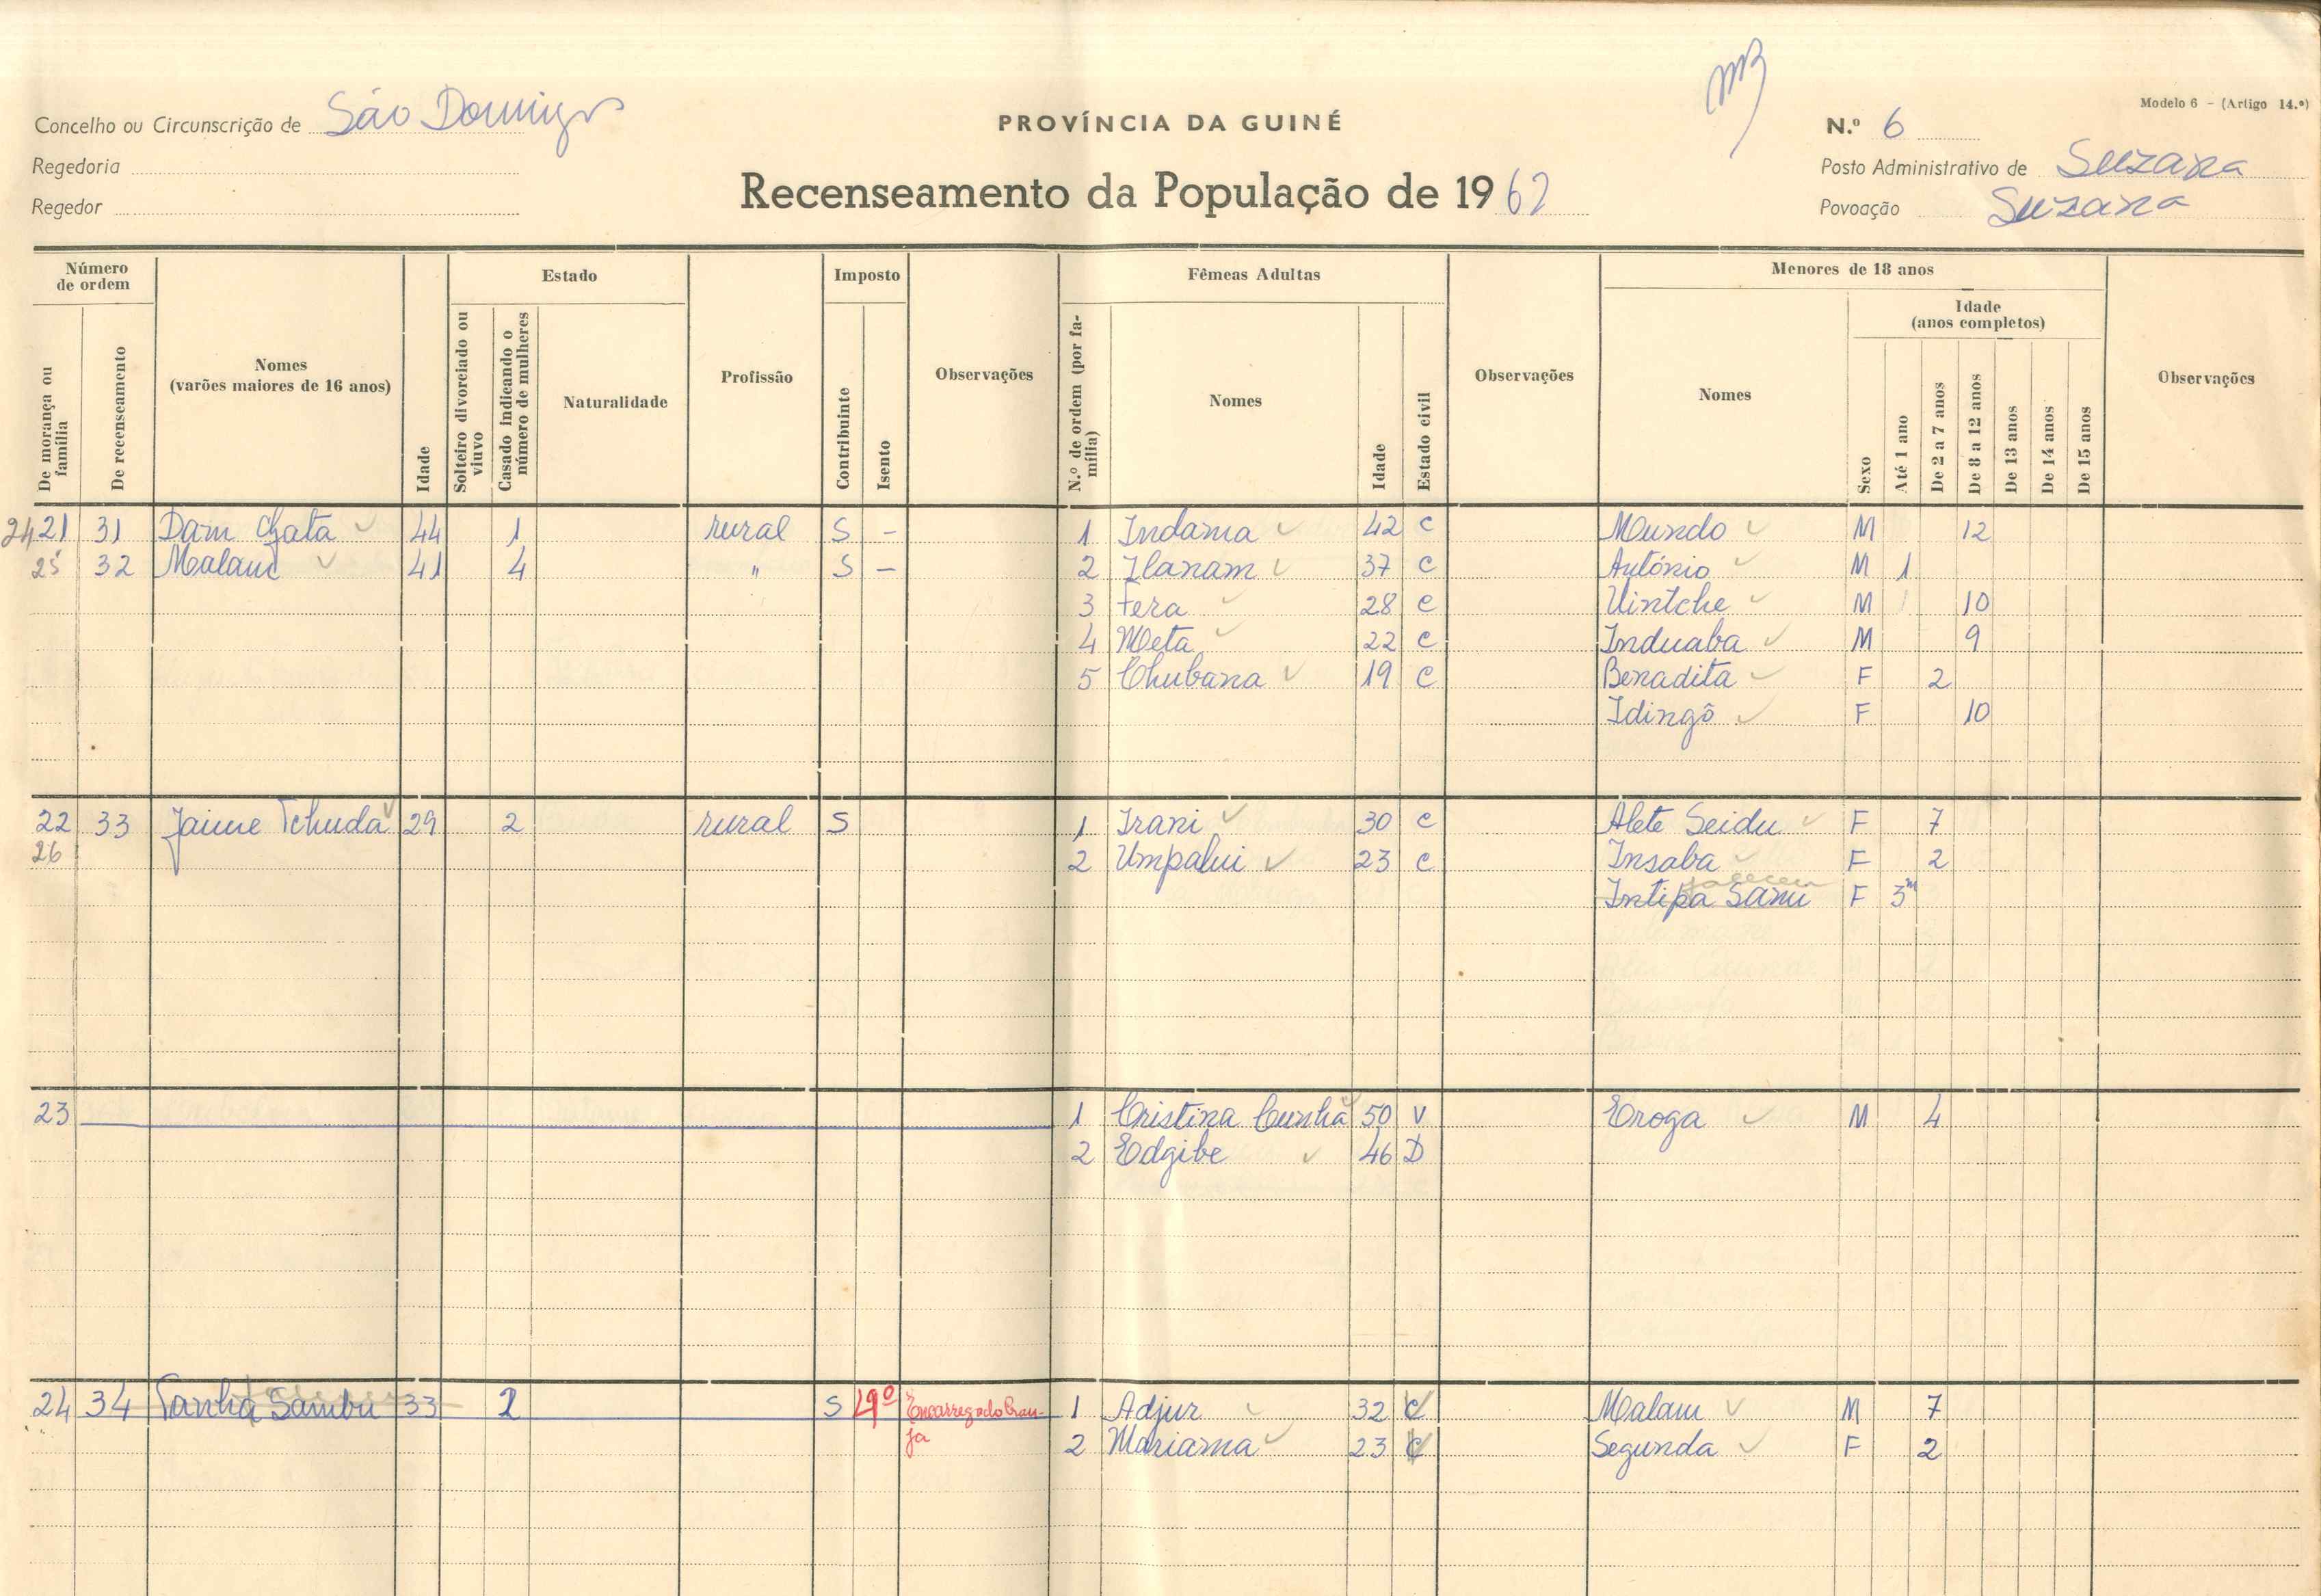 Modelo 6 - (Artigo 14.º)
Concelho ou Circunscrição de São Domingos
PROVÍNCIA DA GUINÉ
N.º 6
Regedoria
Posto Administrativo de Suzana
Recenseamento da População de 1962
Regedor
Povoação Suzana
Número de ordem
De morança ou família
De recenseamento
Nomes
(varões maiores de 16 anos)
Idade
Estado
Solteiro divorciado ou viuvo
Casado indicando o número de mulheres
Naturalidade
Profissão
Imposto
Contribuinte
Isento
Observações
Fêmeas Adultas
N.º de ordem (por família)
Nomes
Idade
Estado civil
Observações
Menores de 18 anos
Nomes
Sexo
Idade
(anos completos)
Até 1 ano
De 2 a 7 anos
De 8 a 12 anos
De 13 anos
De 14 anos
De 15 anos
Observações
24 21 31 Dam Gata 44 1 rural S - 1 Indama 42 C Mundo M 12
25 32 Malam 41 4 " S - 2 Ilanam 37 C António M 1
3 Fera 28 C Uintche M 10
4 Meta 22 C Induaba M 9
5 Chubana 19 C Benadita F 2
Idingô F 10
22 33 Jaime Tchuda 29 2 rural S 1 Irani 30 C Alete Seidu F 7
26 2 Umpalui 23 C Insaba F 2
Intipa Sanu F 3m
23 1 Cristina Cunha 50 V Eroga M 4
2 Edgibe 46 D
24 34 Sambu 33 2 S 19º Encarregado Gran- 1 Adjur 32 C Malam M 7
ja 2 Mariama 23 C Segunda F 2